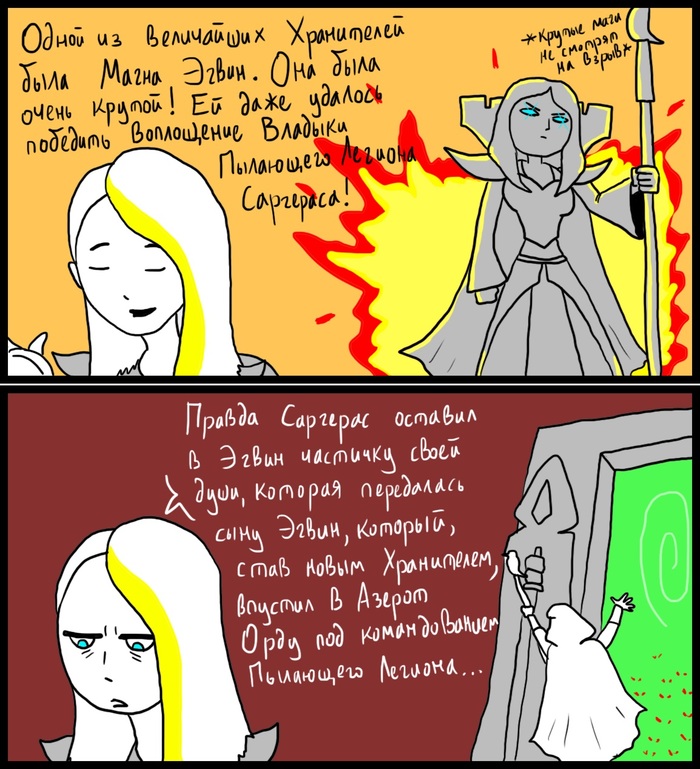 Одной из величайших Хранителей
была Магна Эгвин. Она была
очень крутой! Ей даже удалось
победить Воплощение Владыки
Пылающего Легиона
Саргераса!
*Крутые маги
не смотрят
на взрыв*
Правда Саргерас оставил
в Эгвин частичку своей
души, которая передалась
сыну Эгвин, который,
став новым Хранителем,
впустил в Азерот
Орду под командованием
Пылающего Легиона...